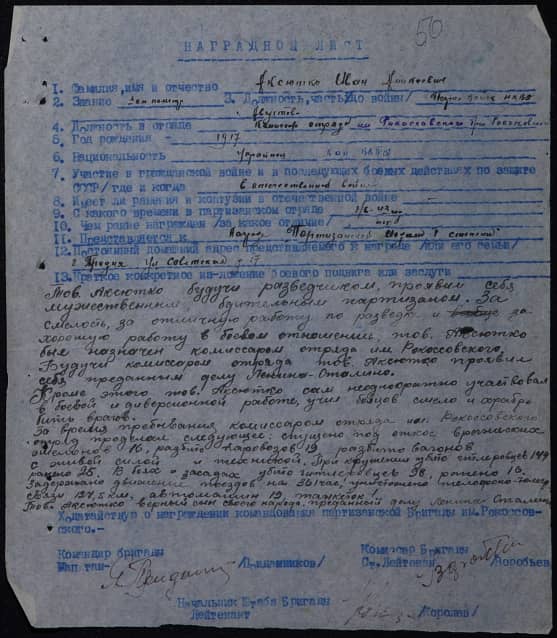 50
НАГРАДНОЙ ЛИСТ
1. Фамилия, имя и отчество Аксютко Иван
2. Звание 3. Должность, часть/до войны/ НКВД
Августов
4. Должность в отряде Комиссар отряда им Рокоссовского при Рокоссов
5. Год рождения - 1917
6. Национальность Украинец
7. Участие в гражданской войне и в последующих боевых действиях по защите
СССР/где и когда В отечественной войне
8. Имеет ли ранения и контузии в отечественной войне
9. С какого времени в партизанском отряде
10. Чем ранее награжден /за какое отличие/
11. Представляется к Партизанской Медали I степени
12. Постоянный домашний адрес представляемого к награде /или его семьи/
г. Гродно ул Советская
13. Краткое конкретное изложение боевого подвига или заслуги
Тов. Аксютко будучи разведчиком, проявил себя
мужественным, бдительным партизаном. За
смелость, за отличную работу по разведке и за
хорошую работу в боевом отношении, тов. Аксютко
был назначен комиссаром отряда им. Рокоссовского.
Будучи комиссаром отряда тов. Аксютко проявил
себя преданным делу Ленина-Сталина.
Кроме этого тов. Аксютко сам неоднократно участвовал
в боевой и диверсионной работе, учил бойцов смело и храбро
бить врагов.
За время пребывания комиссаром отряда им. Рокоссовского
отряд проделал следующее: спущено под откос вражеских
эшелонов 16, разбито паровозов 19 разбито вагонов
с живой силой и техникой. При крушении убито гитлеровцев 149
ранено 35. В боях и засадах убито гитлеровцев 38, ранено 16.
Задержано движение поездов на 361 час, уничтожено телефонно-телегр.
связи 127,5 км, автомашин 12
Тов. Аксютко верный сын своего народа, преданный делу Ленина-Сталина
Ходатайствую о награждении командования партизанской Бригады им. Рокоссов-
ского.-
Командир бригады Комиссар Бригады
Капитан- Ст. Лейтенант Воробьев
Начальник Штаба Бригады
Лейтенант /Королев/